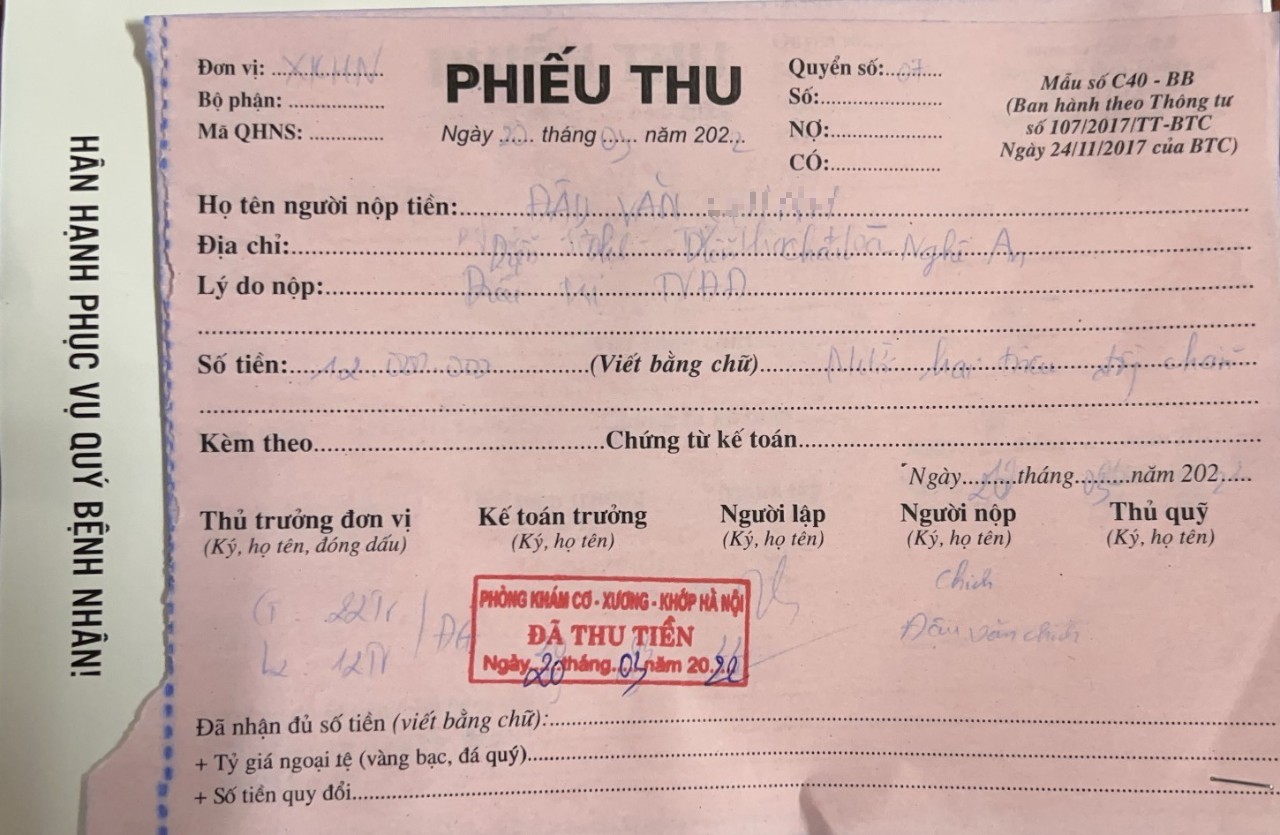 HÂN HẠNH PHỤC VỤ QUÝ BỆNH NHÂN!
Đơn vị: XKHN
Bộ phận:
Mã QHNS:
PHIẾU THU
Ngày 20 tháng 03 năm 2022
Quyển số: 07
Số:
NỢ:
CÓ:
Mẫu số C40 - BB
(Ban hành theo Thông tư
số 107/2017/TT-BTC
Ngày 24/11/2017 của BTC)
Họ tên người nộp tiền: ĐẬU VĂN
Địa chỉ: Nghệ An
Lý do nộp:
Số tiền: 12 000 000 (Viết bằng chữ) hai triệu đồng chẵn
Kèm theo Chứng từ kế toán
Ngày 20 tháng 03 năm 2022
Thủ trưởng đơn vị Kế toán trưởng Người lập Người nộp Thủ quỹ
(Ký, họ tên, đóng dấu) (Ký, họ tên) (Ký, họ tên) (Ký, họ tên) (Ký, họ tên)
22Tr
12Tr
PHÒNG KHÁM CƠ - XƯƠNG - KHỚP HÀ NỘI
ĐÃ THU TIỀN
Ngày 20 tháng 03 năm 2022
Đã nhận đủ số tiền (viết bằng chữ):
+ Tỷ giá ngoại tệ (vàng bạc, đá quý)
+ Số tiền quy đổi